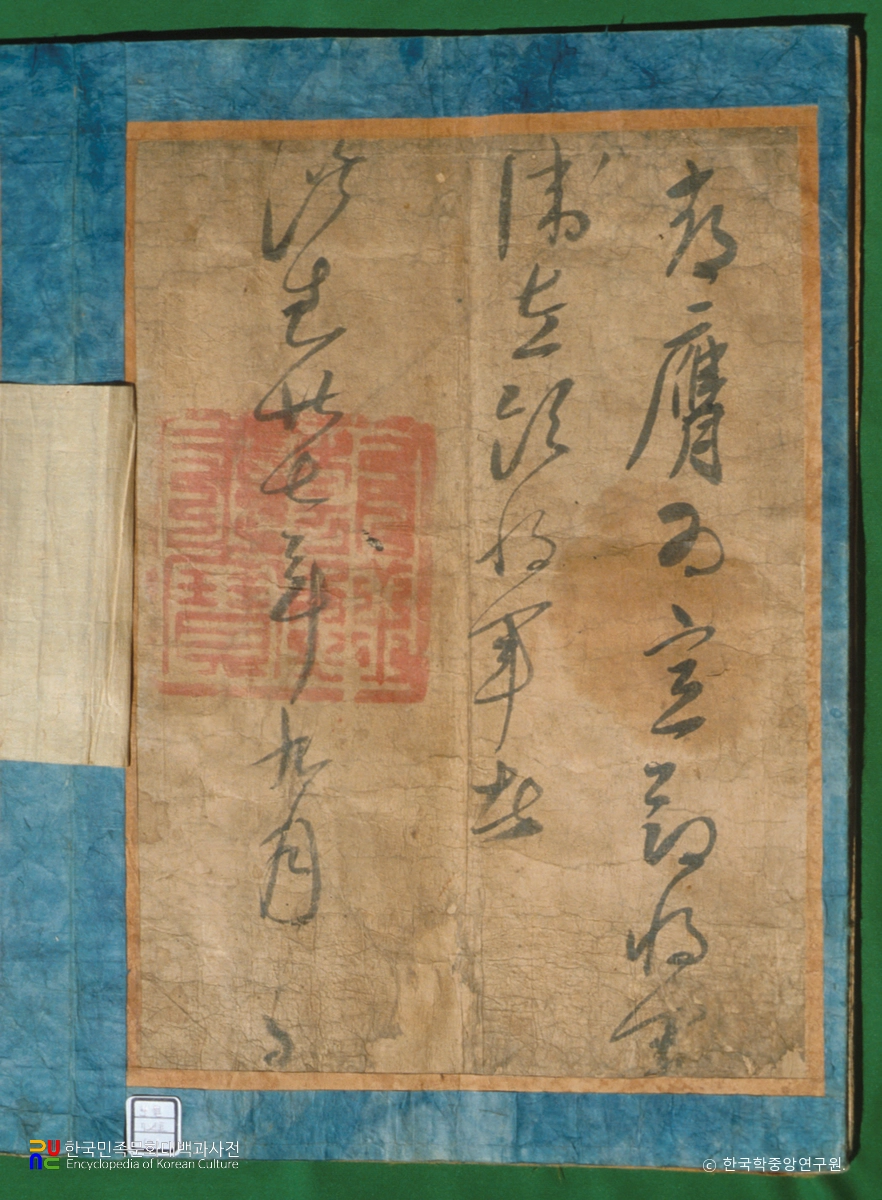 都膺爲宣節將軍
衛左領將軍者
洪武廿七年九月 日
한국민족문화대백과사전
Encyclopedia of Korean Culture
© 한국학중앙연구원